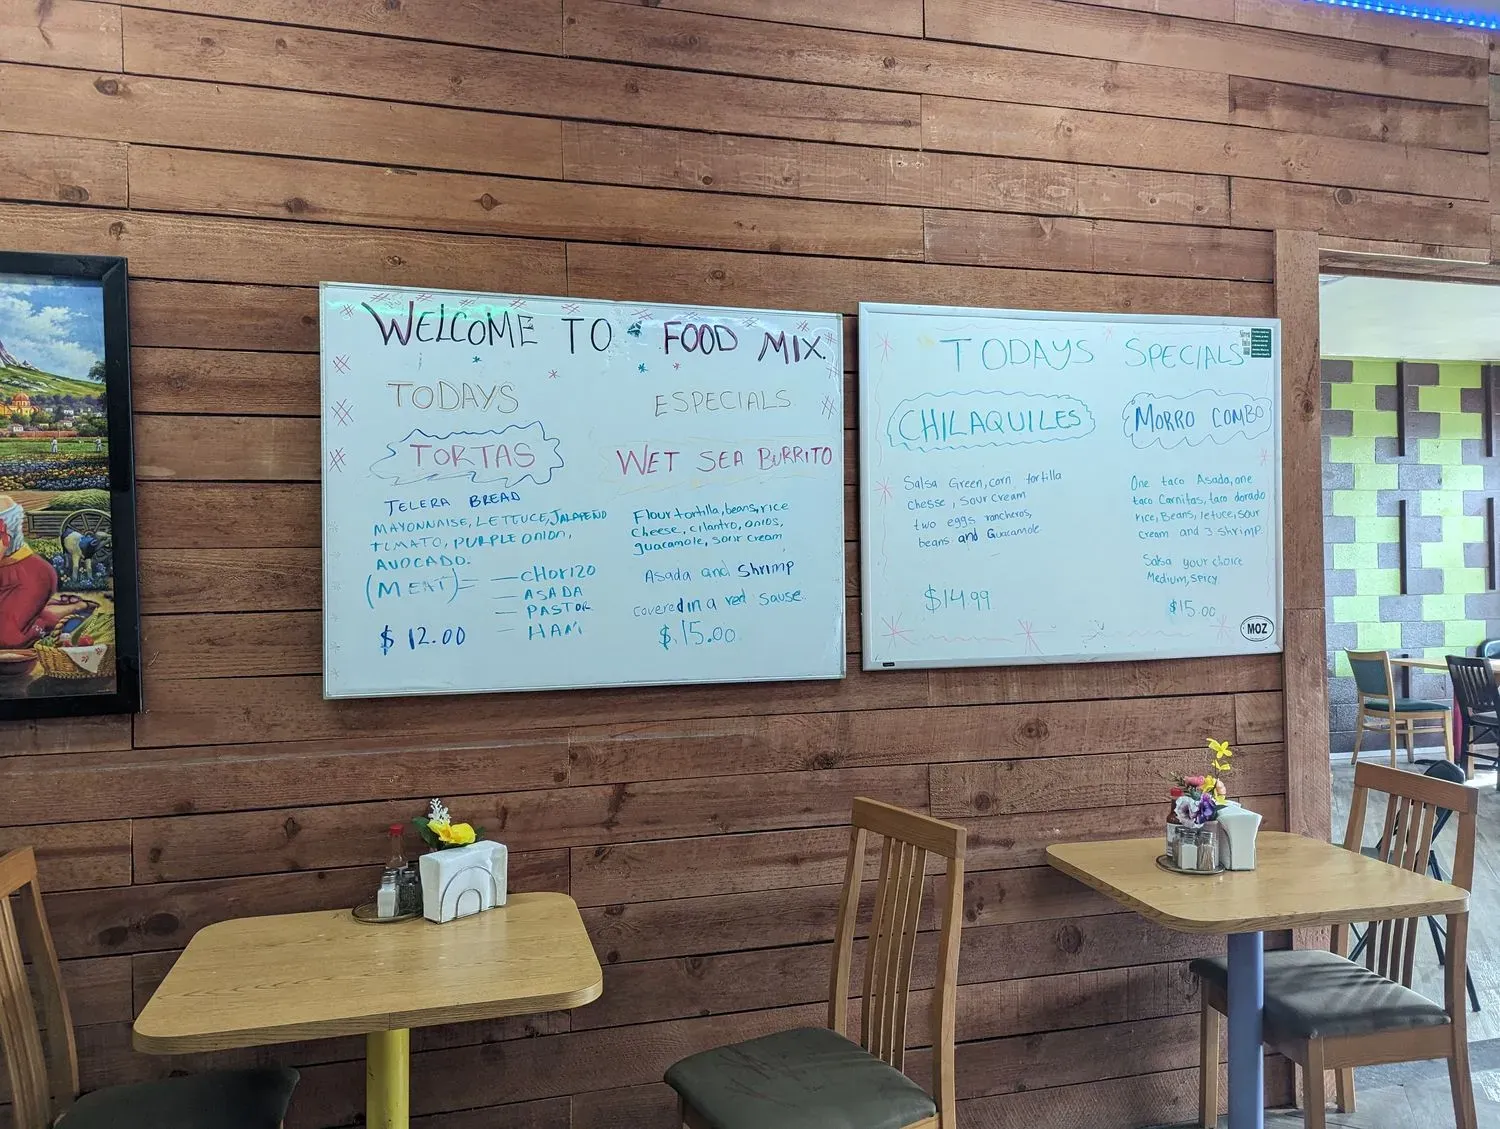 WELCOME TO FOOD MIX.
TODAYS
TORTAS
TELERA BREAD
MAYONNAISE, LETTUCE, JALAPEÑO
TOMATO, PURPLE ONION,
AVOCADO.
(MEAT)= — CHORIZO
— ASADA
— PASTOR
— HAM
$ 12.00
ESPECIALS
WET SEA BURRITO
Flour tortilla, beans, rice
Cheese, cilantro, onios,
guacamole, sour cream
Asada and Shrimp
covered in a red sause.
$.15.00
TODAYS SPECIALS
CHILAQUILES
Salsa Green, corn tortilla
chesse, sour cream
two eggs rancheros,
beans and Guacamole
$14.99
MORRO COMBO
One taco Asada, one
taco Carnitas, taco dorado
rice, Beans, letuce, sour
cream and 3 shrimp.
Salsa your choice
Medium, spicy
$15.00
MOZ